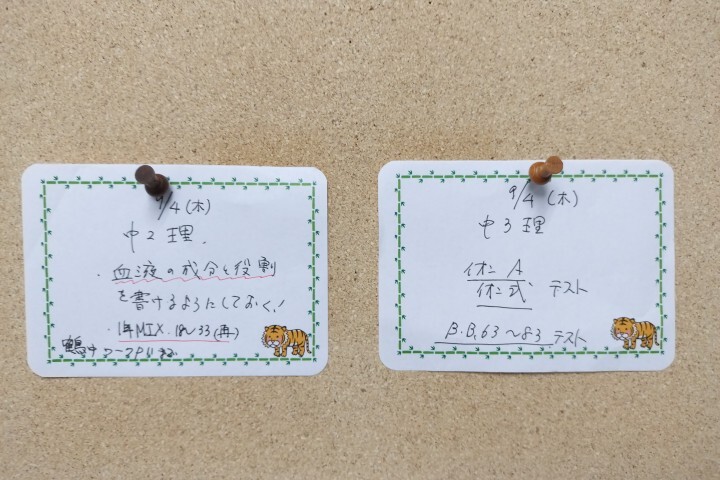 9/4(木)
中2 理.
・血液の成分と役割
を書けるようにしておく!
・1年MIX. 18~33(再)
9/4(木)
中3 理
イオン A
イオン式. テスト
B.B.63~83 テスト